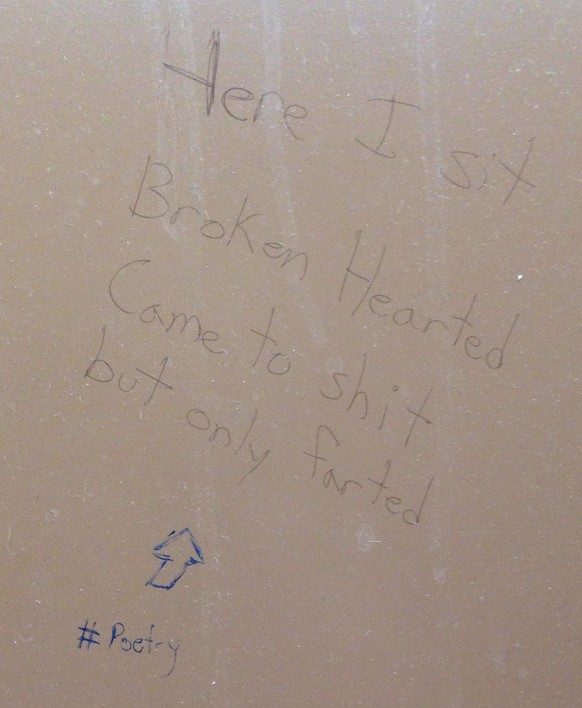 Here I sit
Broken Hearted
Came to shit
but only farted
#Poetry